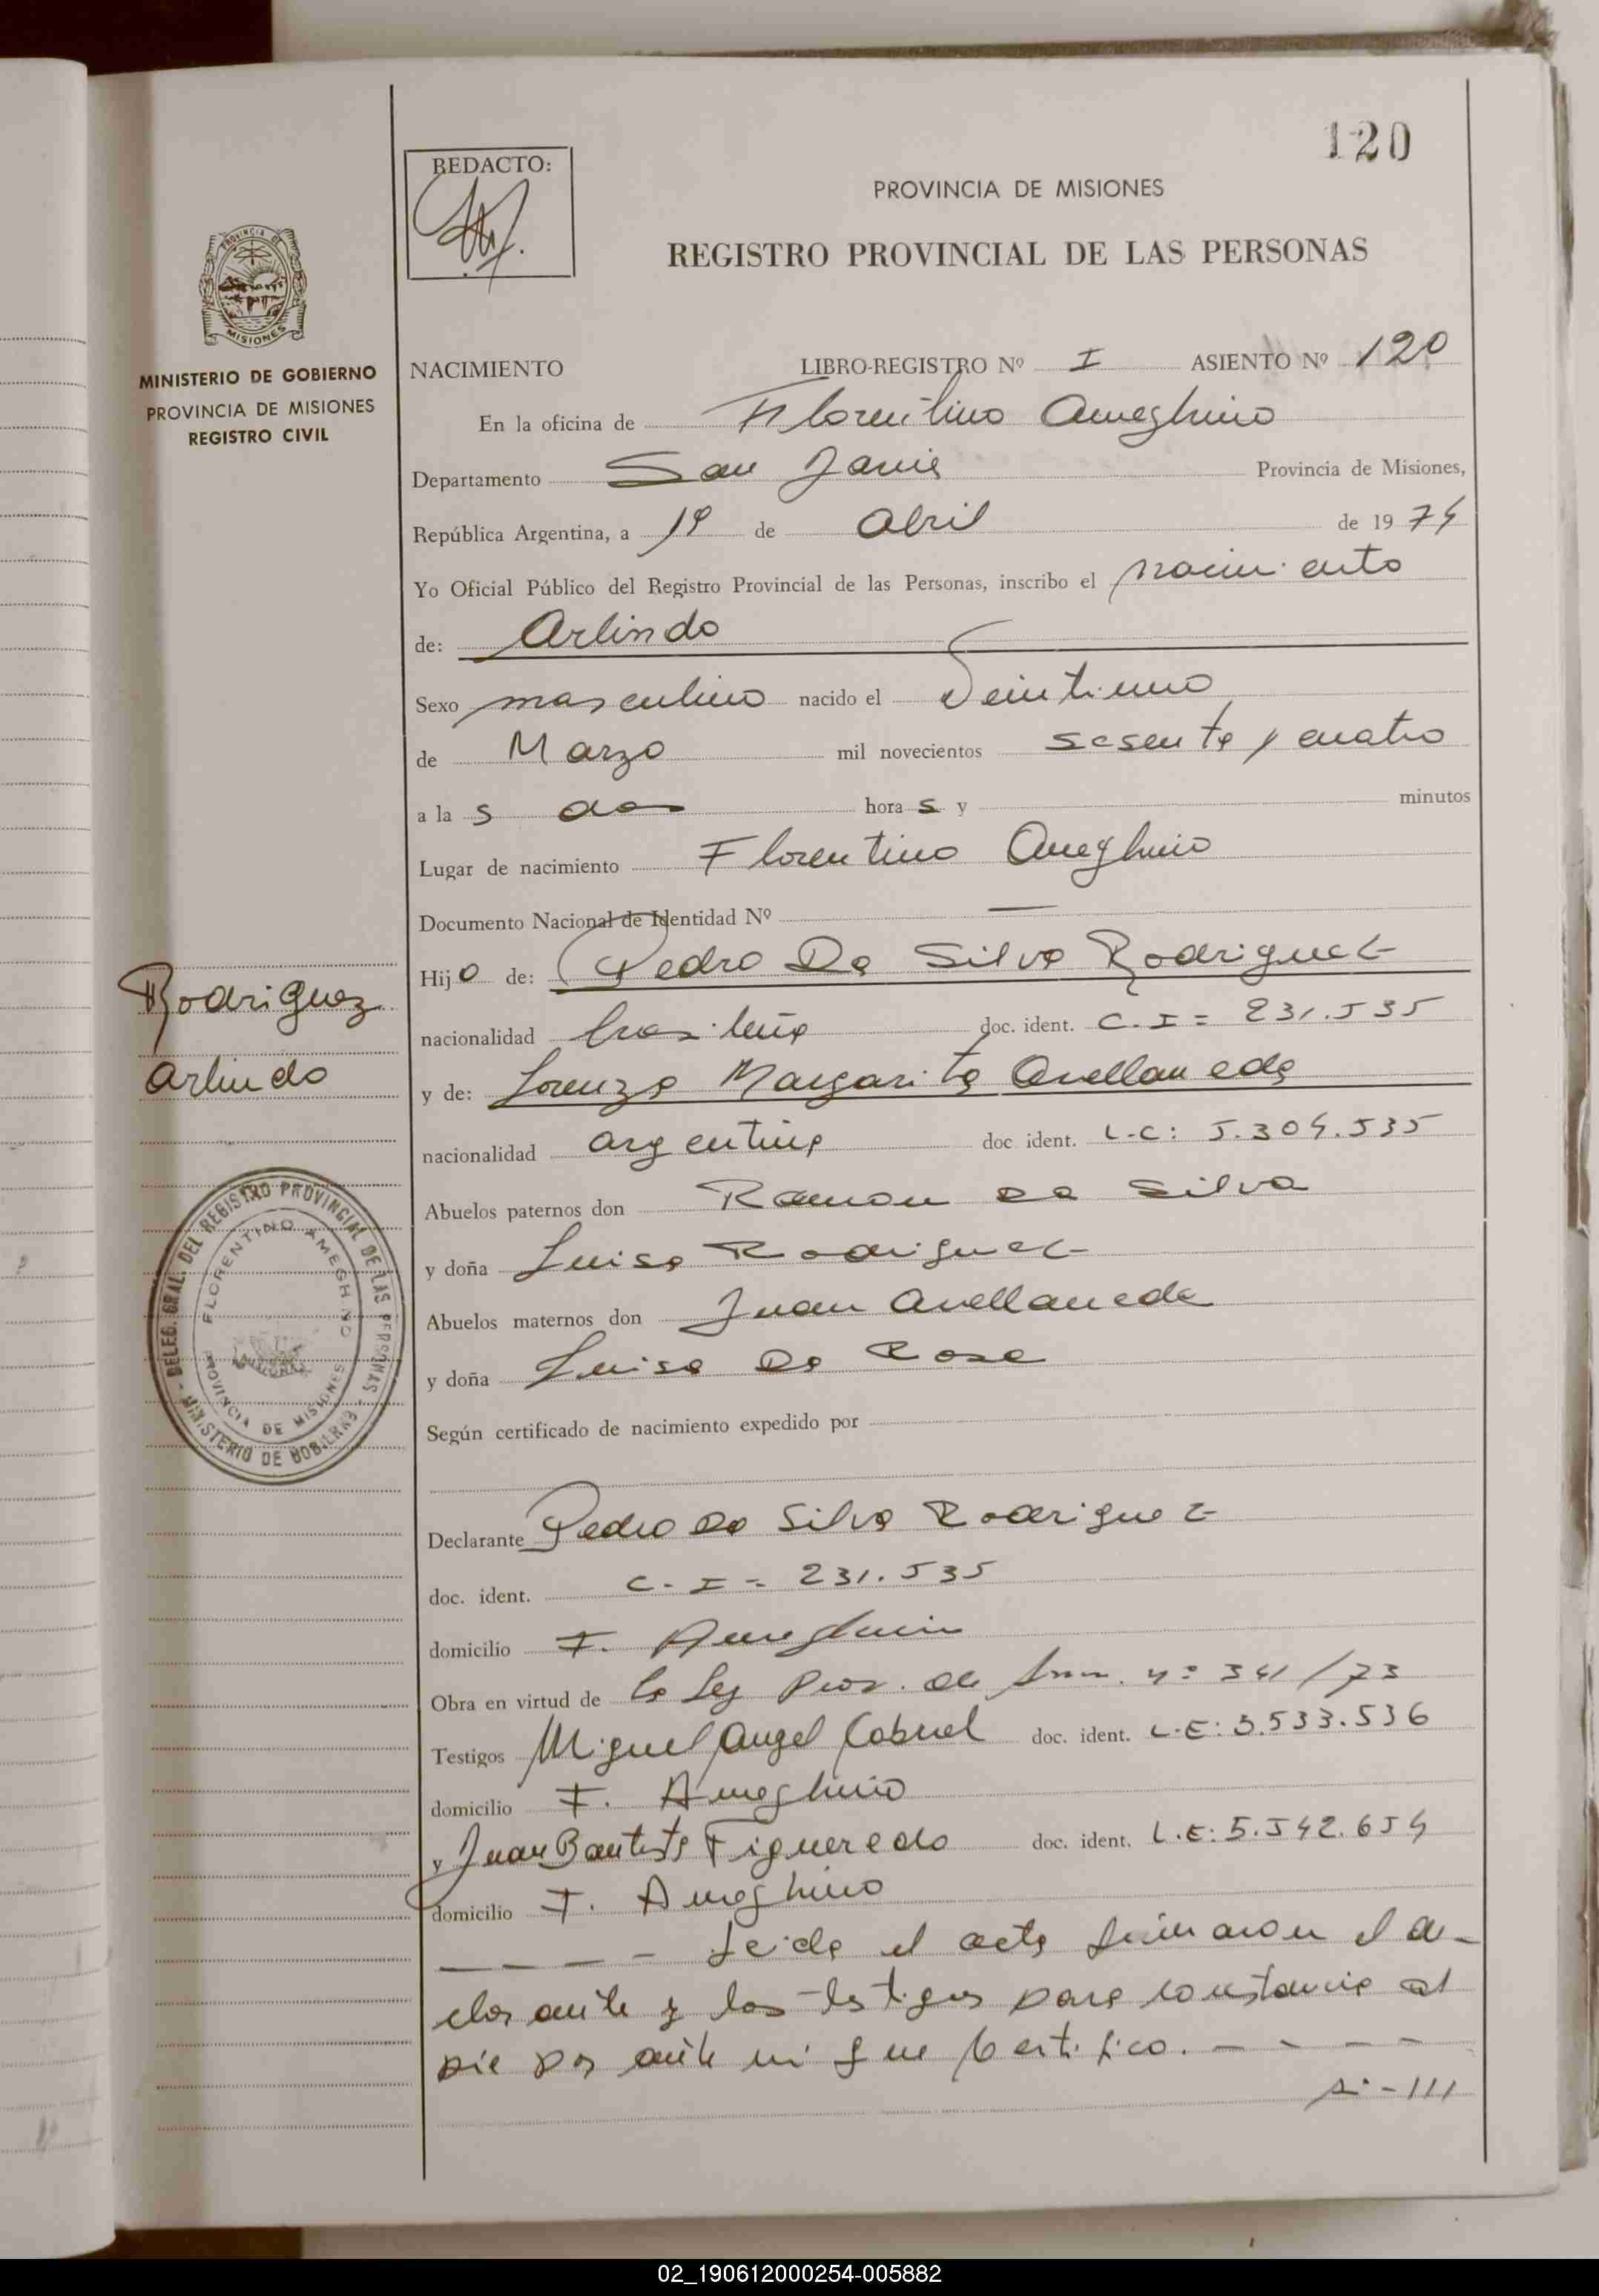 120
REDACTO:
PROVINCIA DE MISIONES
REGISTRO PROVINCIAL DE LAS PERSONAS
PROVINCIA DE MISIONES
MINISTERIO DE GOBIERNO
PROVINCIA DE MISIONES
REGISTRO CIVIL
NACIMIENTO LIBRO-REGISTRO Nº I ASIENTO Nº 120
En la oficina de Florentino Ameghino
Departamento San Javier Provincia de Misiones,
República Argentina, a 1º de Abril de 1974
Yo Oficial Público del Registro Provincial de las Personas, inscribo el nacimiento
de: Arlindo
Sexo masculino nacido el Veintiuno
de Marzo mil novecientos sesenta y cuatro
a la s dos hora s y minutos
Lugar de nacimiento Florentino Ameghino
Documento Nacional de Identidad Nº —
Hijo de: Pedro Da Silva Rodriguez
Rodriguez
Arlindo
nacionalidad brasileña doc. ident. C.I = 231.535
y de: Lorenza Margarita Avellaneda
nacionalidad argentina doc ident. L.C: 5.304.535
Abuelos paternos don Ramon Da Silva
y doña Luisa Rodriguez
Abuelos maternos don Juan Avellaneda
y doña Luisa Da Rosa
DELEG. GRAL. DEL REGISTRO PROVINCIAL DE LAS PERSONAS
FLORENTINO AMEGHINO
PROVINCIA DE MISIONES
MINISTERIO DE GOBIERNO
Según certificado de nacimiento expedido por
Declarante Pedro Da Silva Rodriguez
doc. ident. C.I = 231.535
domicilio F. Ameghino
Obra en virtud de la Ley Prov. de nº 341/73
Testigos Miguel Angel Cabral doc. ident. L.E: 3.533.536
domicilio F. Ameghino
y Juan Bautista Figueredo doc. ident. L.E: 5.542.654
domicilio F. Ameghino
_ _ _ _ Leida el acta firmaron el de-
clarante y los testigos para constancia al
pie por ante mi que Certifico. - - - -
02_190612000254-005882